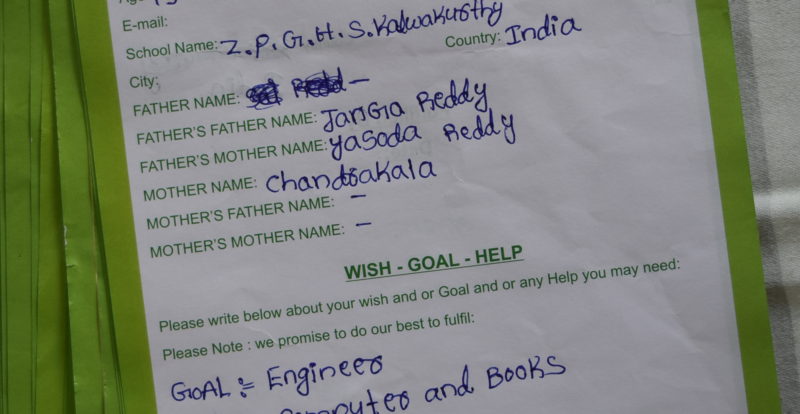 E-mail:
School Name: Z.P.G.H.S. Kalwakurthy
City: Country: India
FATHER NAME: –
FATHER'S FATHER NAME: JanGIa Reddy
FATHER'S MOTHER NAME: yasoda Reddy
MOTHER NAME: Chandrakala
MOTHER'S FATHER NAME: –
MOTHER'S MOTHER NAME: –
WISH - GOAL - HELP
Please write below about your wish and or Goal and or any Help you may need:
Please Note : we promise to do our best to fulfil:
GOAL := Engineer
and BOOKS